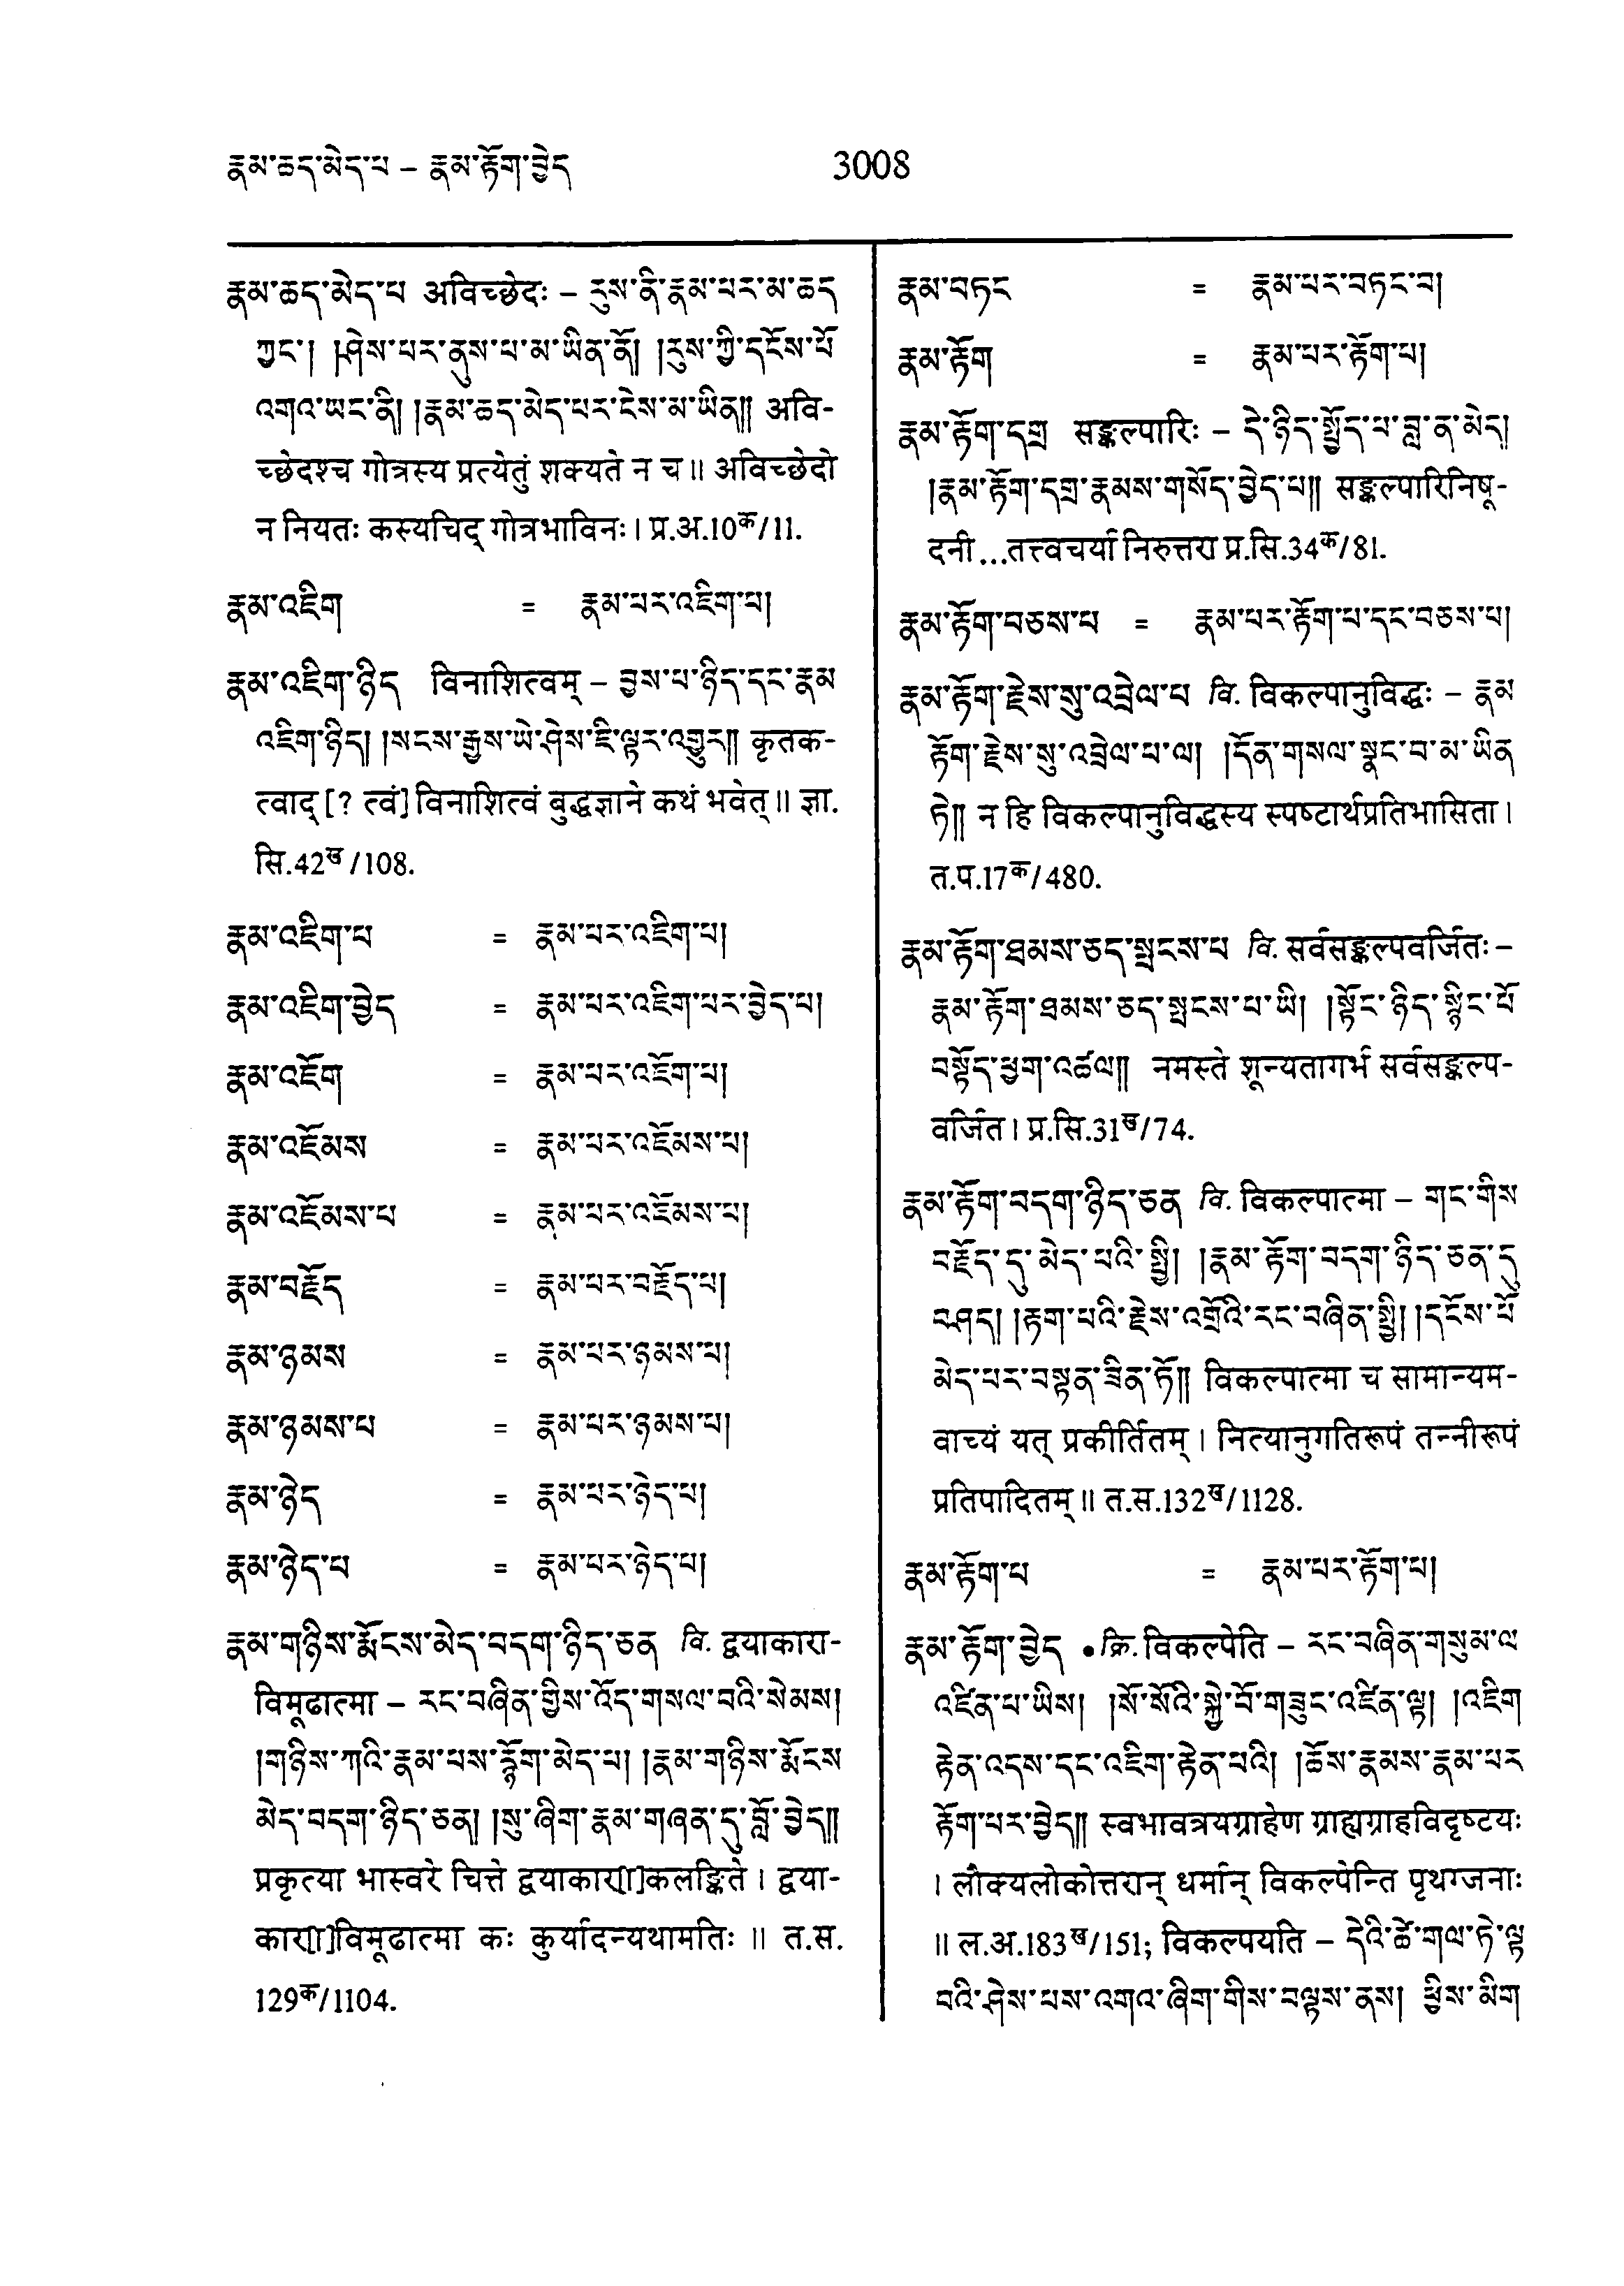 རྣམ་ཆད་མེད་པ – རྣམ་རྟོག་བྱེད
3008
རྣམ་ཆད་མེད་པ अविच्छेदः – རུས་ནི་རྣམ་པར་མ་ཆད
ཀྱང་། །ཤེས་པར་ནུས་པ་མ་ཡིན་ནོ། །རུས་ཀྱི་དངོས་པོ
འགའ་ཡང་ནི། །རྣམ་ཆད་མེད་པར་ངེས་མ་ཡིན།། अवि-
च्छेदश्च गोत्रस्य प्रत्येतुं शक्यते न च॥ अविच्छेदो
न नियतः कस्यचिद् गोत्रभाविनः। प्र.अ.10क/11.
རྣམ་འཇིག = རྣམ་པར་འཇིག་པ།
རྣམ་འཇིག་ཉིད विनाशित्वम् – བྱས་པ་ཉིད་དང་རྣམ
འཇིག་ཉིད། །སངས་རྒྱས་ཡེ་ཤེས་ཇི་ལྟར་འགྱུར།། कृतक-
त्वाद् [? त्वं] विनाशित्वं बुद्धज्ञाने कथं भवेत्॥ ज्ञा.
सि.42ख/108.
རྣམ་འཇིག་པ = རྣམ་པར་འཇིག་པ།
རྣམ་འཇིག་བྱེད = རྣམ་པར་འཇིག་པར་བྱེད་པ།
རྣམ་འཇོག = རྣམ་པར་འཇོག་པ།
རྣམ་འཇོམས = རྣམ་པར་འཇོམས་པ།
རྣམ་འཇོམས་པ = རྣམ་པར་འཇོམས་པ།
རྣམ་བརྗོད = རྣམ་པར་བརྗོད་པ།
རྣམ་ཉམས = རྣམ་པར་ཉམས་པ།
རྣམ་ཉམས་པ = རྣམ་པར་ཉམས་པ།
རྣམ་ཉེད = རྣམ་པར་ཉེད་པ།
རྣམ་ཉེད་པ = རྣམ་པར་ཉེད་པ།
རྣམ་གཉིས་རྨོངས་མེད་བདག་ཉིད་ཅན वि. द्वयाकारा-
विमूढात्मा – རང་བཞིན་གྱིས་འོད་གསལ་བའི་སེམས།
།གཉིས་ཀའི་རྣམ་པས་རྙོག་མེད་པ། །རྣམ་གཉིས་རྨོངས
མེད་བདག་ཉིད་ཅན། །སུ་ཞིག་རྣམ་གཞན་དུ་བློ་བྱེད།།
प्रकृत्या भास्वरे चित्ते द्वयाकार[ा]कलङ्किते। द्वया-
कार[ा]विमूढात्मा कः कुर्यादन्यथामतिः॥ त.स.
129क/1104.
རྣམ་བཏང = རྣམ་པར་བཏང་བ།
རྣམ་རྟོག = རྣམ་པར་རྟོག་པ།
རྣམ་རྟོག་དགྲ सङ्कल्पारिः – དེ་ཉིད་སྤྱོད་པ་བླ་ན་མེད།
།རྣམ་རྟོག་དགྲ་རྣམས་གསོད་བྱེད་པ།། सङ्कल्पारिनिषू-
दनी ...तत्त्वचर्या निरुत्तरा प्र.सि.34क/81.
རྣམ་རྟོག་བཅས་པ = རྣམ་པར་རྟོག་པ་དང་བཅས་པ།
རྣམ་རྟོག་རྗེས་སུ་འབྲེལ་པ वि. विकल्पानुविद्धः – རྣམ
རྟོག་རྗེས་སུ་འབྲེལ་པ་ལ། །དོན་གསལ་སྣང་བ་མ་ཡིན
ཏེ།། न हि विकल्पानुविद्धस्य स्पष्टार्थप्रतिभासिता।
त.प.17क/480.
རྣམ་རྟོག་ཐམས་ཅད་སྤངས་པ वि. सर्वसङ्कल्पवर्जितः –
རྣམ་རྟོག་ཐམས་ཅད་སྤངས་པ་ཡི། །སྟོང་ཉིད་སྙིང་པོ
བསྟོད་ཕྱག་འཚལ།། नमस्ते शून्यतागर्भ सर्वसङ्कल्प-
वर्जित। प्र.सि.31ख/74.
རྣམ་རྟོག་བདག་ཉིད་ཅན वि. विकल्पात्मा – གང་གིས
བརྗོད་དུ་མེད་པའི་སྤྱི། །རྣམ་རྟོག་བདག་ཉིད་ཅན་དུ
བཤད། །རྟག་པའི་རྗེས་འགྲོའི་རང་བཞིན་སྤྱི། །དངོས་པོ
མེད་པར་བསྟན་ཟིན་ཏོ།། विकल्पात्मा च सामान्यम-
वाच्यं यत् प्रकीर्तितम्। नित्यानुगतिरूपं तन्नीरूपं
प्रतिपादितम्॥ त.स.132ख/1128.
རྣམ་རྟོག་པ = རྣམ་པར་རྟོག་པ།
རྣམ་རྟོག་བྱེད • क्रि. विकल्पेति – རང་བཞིན་གསུམ་ལ
འཛིན་པ་ཡིས། །སོ་སོའི་སྐྱེ་བོ་གཟུང་འཛིན་ལྟ། །འཇིག
རྟེན་འདས་དང་འཇིག་རྟེན་པའི། །ཆོས་རྣམས་རྣམ་པར
རྟོག་པར་བྱེད།། स्वभावत्रयग्राहेण ग्राह्यग्राहविदृष्टयः
। लौक्यलोकोत्तरान् धर्मान् विकल्पेन्ति पृथग्जनाः
॥ ल.अ.183ख/151; विकल्पयति – དེའི་ཚེ་གལ་ཏེ་ལྟ
བའི་ཤེས་པས་འགའ་ཞིག་གིས་བལྟས་ནས། ཕྱིས་མིག